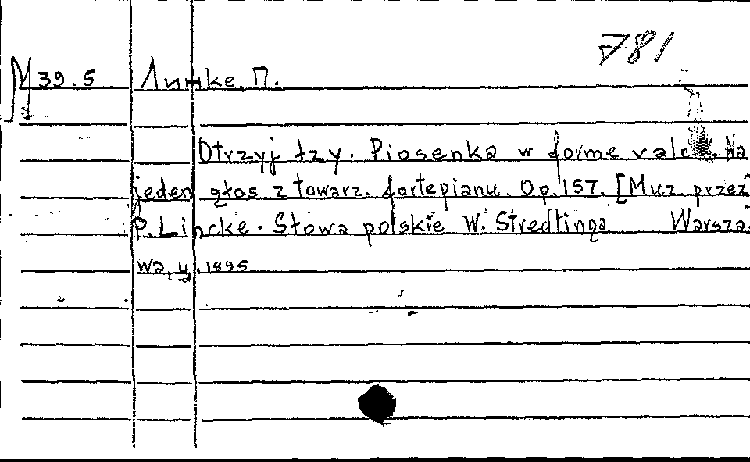 781
M 39.5 Линке, П.
Otrzyj łzy. Piosenka w formie valca. Na
jeden głos z towarz. fortepianu. Op. 157. [Muz. przez
P. Lincke. Słowa polskie W. Stredtinga Warsza-
wa, 1895